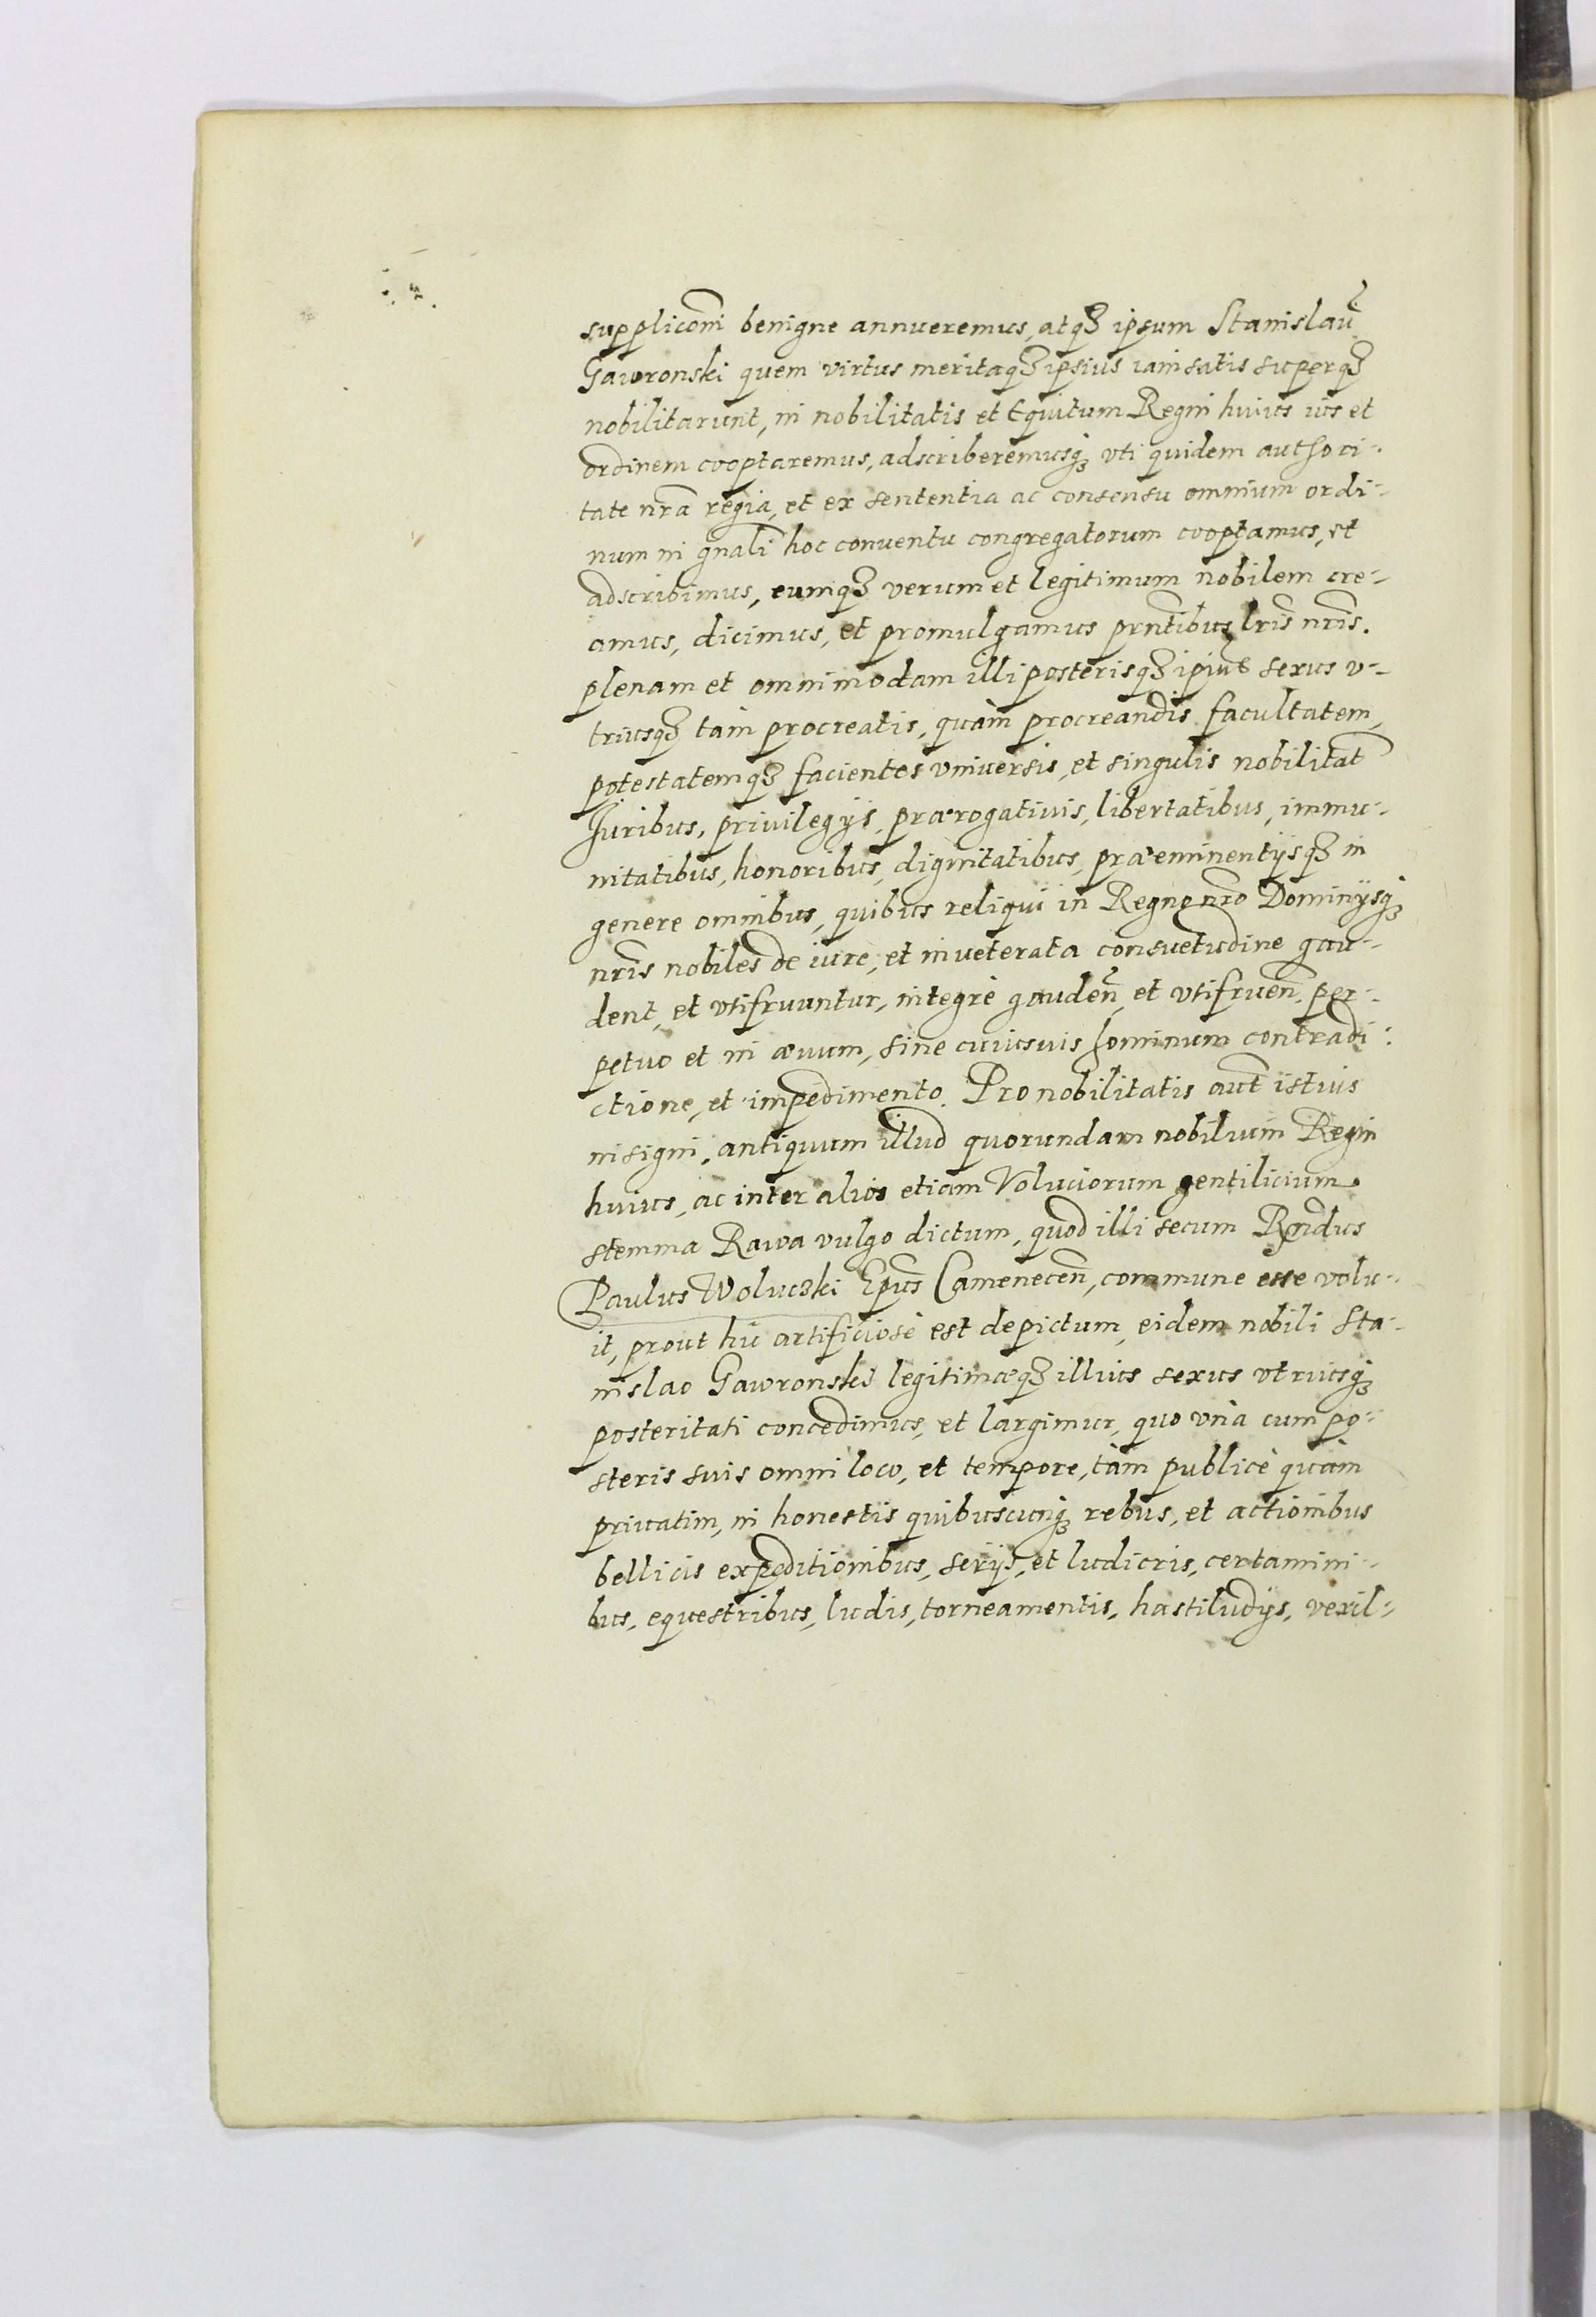 suppliconi benigne annueremus, atq; ipsum Stanislaū
Gawronski quem virtus meritaq; ipsius iam satis superq;
nobilitarunt, in nobilitatis et Equitum Regni huius ius et
ordinem cooptaremus, adscriberemusq; vti quidem authori-
tate nrã regia, et ex sententia ac consensu omnium ordi-
num in gnali hoc conuentu congregatorum cooptamus, et
adscribimus, eumq; verum et legitimum nobilem cre-
amus, dicimus, et promulgamus prntibus lris nris.
plenam et omnimodam illi posterisq; ipius sexus v-
triusq; tàm procreatis, quàm procreandis facultatem,
potestatemq; facientes vniuersis, et singulis nobilitat
Iuribus, priuilegijs, prærogatiuis, libertatibus, immu-
nitatibus, honoribus, dignitatibus, præeminentijsq; in
genere omnibus, quibus reliqui in Regno nro Dominijsq;
nris nobiles de iure, et inueterata consuetudine gau-
dent, et vtifruuntur, integrè gauden, et vtifruen, per-
petuo et in æuum, sine cuiusuis hominum contradi-
ctione, et impedimento. Pro nobilitatis aut istius
insigni, antiquum illud quorundam nobilium Regni
huius, ac inter alios etiam Voluciorum gentilicium
stemma Rawa vulgo dictum, quod illi secum Rndus
Paulus Wolucski Epus Camenecen, commune esse volu-
it, prout hic artificiosè est depictum, eidem nobili Sta-
nislao Gawronski legitimæq; illius sexus vtriusq;
posteritati concedimus, et largimur, quo vnà cum po-
steris suis omni loco, et tempore, tàm publicè quàm
priuatim, in honestis quibuscunq; rebus, et actionibus
bellicis expeditionibus, serijs, et ludicris, certamini-
bus, equestribus, ludis, torneamentis, hastiludijs, vexil-